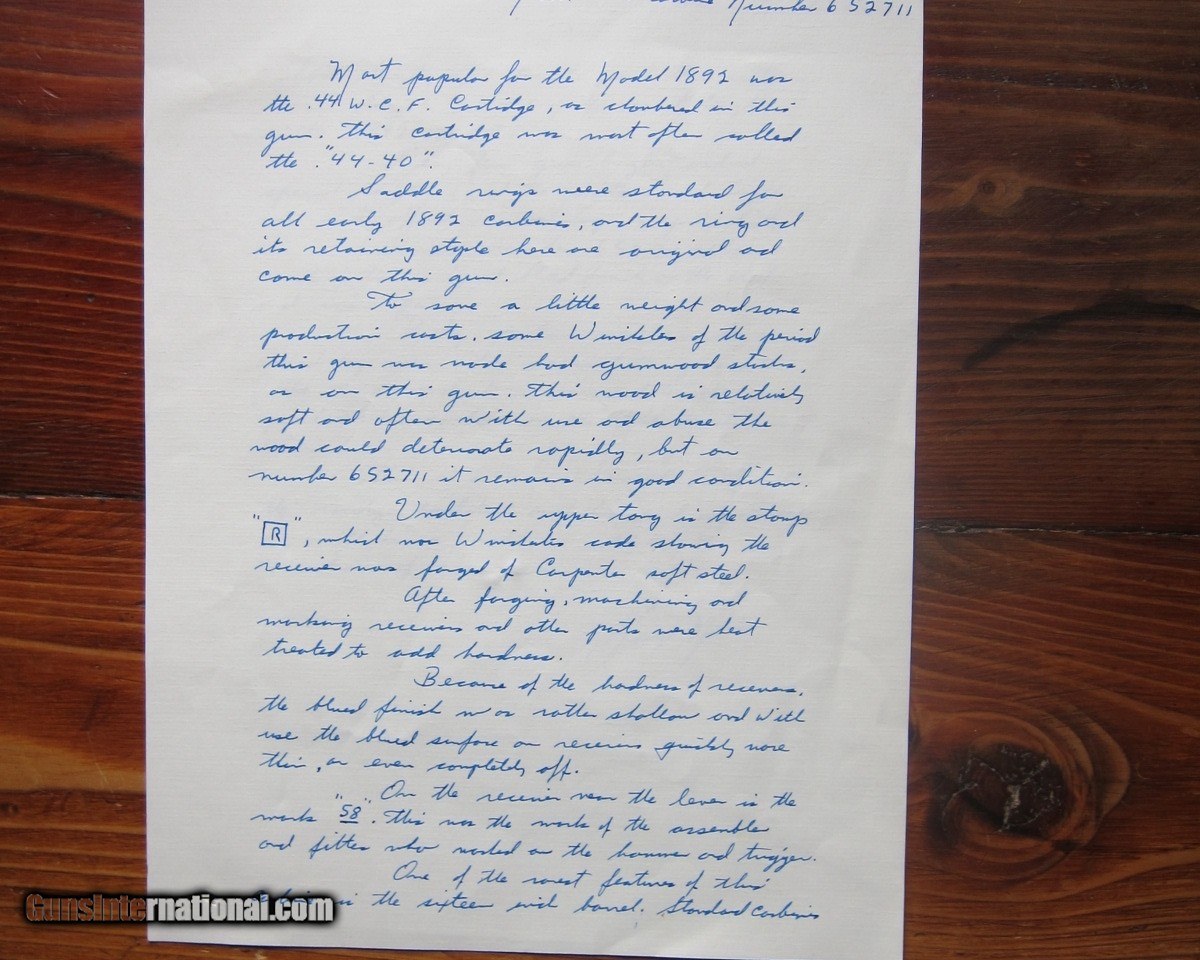 Number 652711
Most popular for the Model 1892 was
the .44 W.C.F. Cartridge, as chambered in this
gun. This cartridge was most often called
the ."44-40".
Saddle rings were standard for
all early 1892 carbines, and the ring and
its retaining staple here are original and
come on this gun.
To save a little weight and some
production costs, some Winchesters of the period
this gun was made had gumwood stocks,
as on this gun. This wood is relatively
soft and often with use and abuse the
wood could deteriorate rapidly, but on
number 652711 it remains in good condition.
Under the upper tang is the stamp
"R", which was Winchesters code showing the
receiver was forged of Carpenter soft steel.
After forging, machining and
marking receivers and other parts were heat
treated to add hardness.
Because of the hardness of receivers,
the blued finish was rather shallow and with
use the blued surface on receivers quickly wore
thin, or even completely off.
On the receiver near the lever is the
mark "58". This was the mark of the assembler
and fitter who worked on the hammer and trigger.
One of the rarest features of this
is the sixteen inch barrel. Standard Carbines
GunsInternational.com